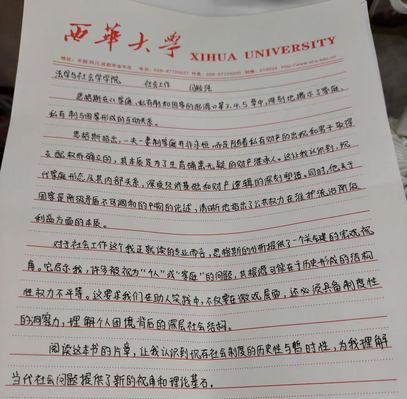 西華大学 XIHUA UNIVERSITY
法学与社会学学院 社会工作
恩格斯在《家庭、私有制和国家的起源》第2、4、5章中,深刻地揭示了家庭、
私有制与国家形成的互动关系。
恩格斯指出,一夫一妻制家庭并非永恒,而是随着私有财产的出现和男子取得
支配权而确立的,其本质是为了生育确凿无疑的财产继承人。这让我认识到,现
代家庭形态及其内部关系,深受经济基础和财产逻辑的深刻塑造。同时,他关于
国家是阶级矛盾不可调和的产物的论述,清晰地指出了公共权力在维护统治阶级
利益方面的本质。
对于社会工作这个我正就读的专业而言,恩格斯的分析提供了一个关键的宏观视
角。它启示我,许多被视为“个人”或“家庭”的问题,其根源可能在于历史形成的结构
性权力不平等。这要求我们在助人实践中,不仅要在微观层面,还必须具备制度性
的洞察力,理解个人困境背后的深层社会结构。
阅读这本书的片章,让我认识到现存社会制度的历史性与暂时性,为我理解
当代社会问题提供了新的视角和理论基石。